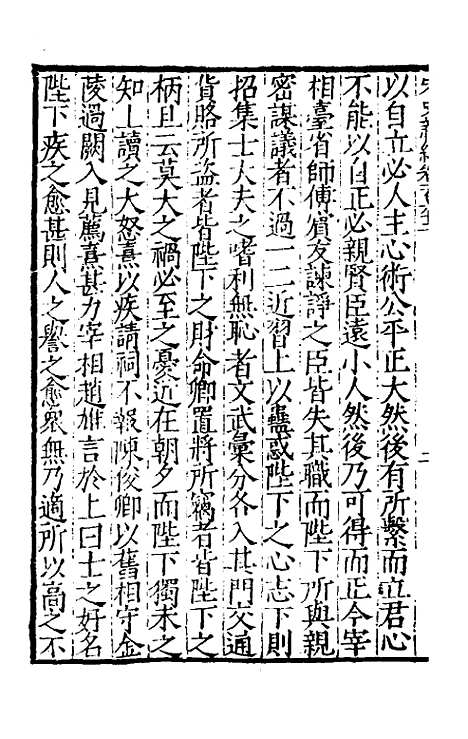 以自立必人主心術公平正大然後有所繫而立君心
不能以自正必親賢臣遠小人然後乃可得而正今宰
相臺省師傅賓友諫諍之臣皆失其職而陛下所與親
密謀議者不過一二近習上以蠱惑陛下之心志下則
招集士大夫之嗜利無恥者文武彙分各入其門交通
貨賂所盜者皆陛下之財命卿置將所竊者皆陛下之
柄且云莫大之禍必至之憂近在朝夕而陛下獨未之
知上讀之大怒熹以疾請祠不報陳俊卿以舊相守金
陵過闕入見薦熹甚力宰相趙雄言於上曰士之好名
陛下疾之愈甚則人之譽之愈眾無乃適所以高之不